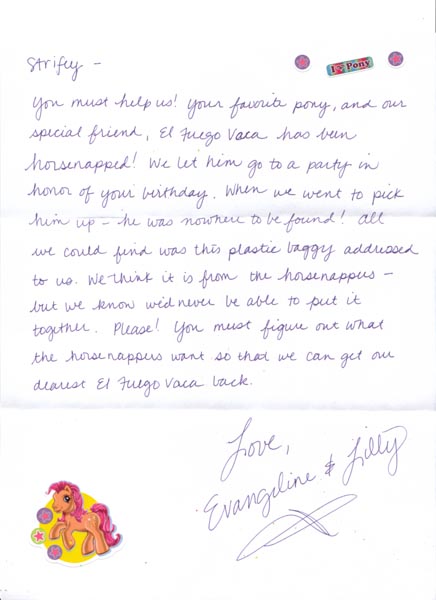 Strifey -
I ♥ Pony
You must help us! Your favorite pony, and our
special friend, El Fuego Vaca has been
horsenapped! We let him go to a party in
honor of your birthday. When we went to pick
him up - he was nowhere to be found! All
we could find was this plastic baggy addressed
to us. We think it is from the horsenappers -
but we know we'd never be able to put it
together. Please! You must figure out what
the horsenappers want so that we can get our
dearest El Fuego Vaca back.
Love,
Evangeline & Lilly